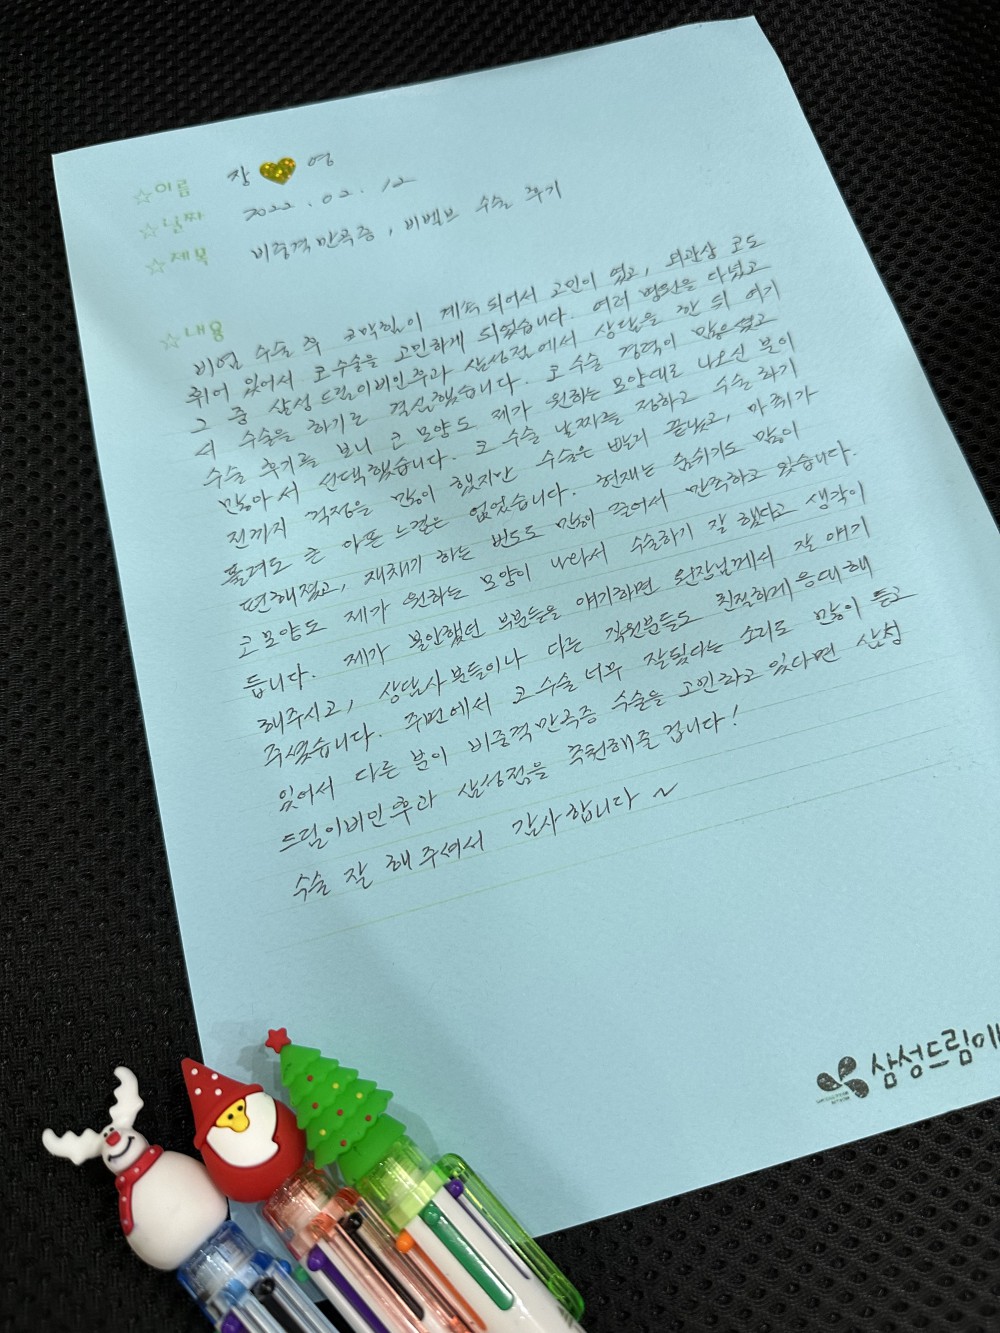 ☆이름 장 영
☆날짜 2022.02.12
☆제목 비중격만곡증, 비밸브 수술 후기
☆내용
비염 수술 후 코막힘이 계속 되어서 고민이 였고, 외관상 코도
휘어 있어서 코수술을 고민하게 되었습니다. 여러 병원을 다녔고
그 중 삼성드림이비인후과 삼성점에서 상담을 한 뒤 여기
서 수술을 하기로 결심했습니다. 코 수술 경력이 많으셨고
수술 후기를 보니 코 모양도 제가 원하는 모양대로 나오신 분이
많아서 선택했습니다. 코 수술 날짜를 정하고 수술 하기
전까지 걱정을 많이 했지만 수술은 빨리 끝났고, 마취가
풀려도 큰 아픈 느낌은 없었습니다. 현재는 숨쉬기도 많이
편해졌고, 재채기 하는 빈도도 많이 줄어서 만족하고 있습니다.
코모양도 제가 원하는 모양이 나와서 수술하기 잘 했다고 생각이
듭니다. 제가 불안했던 부분들을 얘기하면 원장님께서 잘 얘기
해주시고, 상담사분들이나 다른 직원분들도 친절하게 응대해
주셨습니다. 주변에서 코 수술 너무 잘됐다는 소리도 많이 듣고
있어서 다른 분이 비중격만곡증 수술을 고민하고 있다면 삼성
드림이비인후과 삼성점을 추천해줄 겁니다!
수술 잘 해주셔서 감사합니다~
삼성드림이